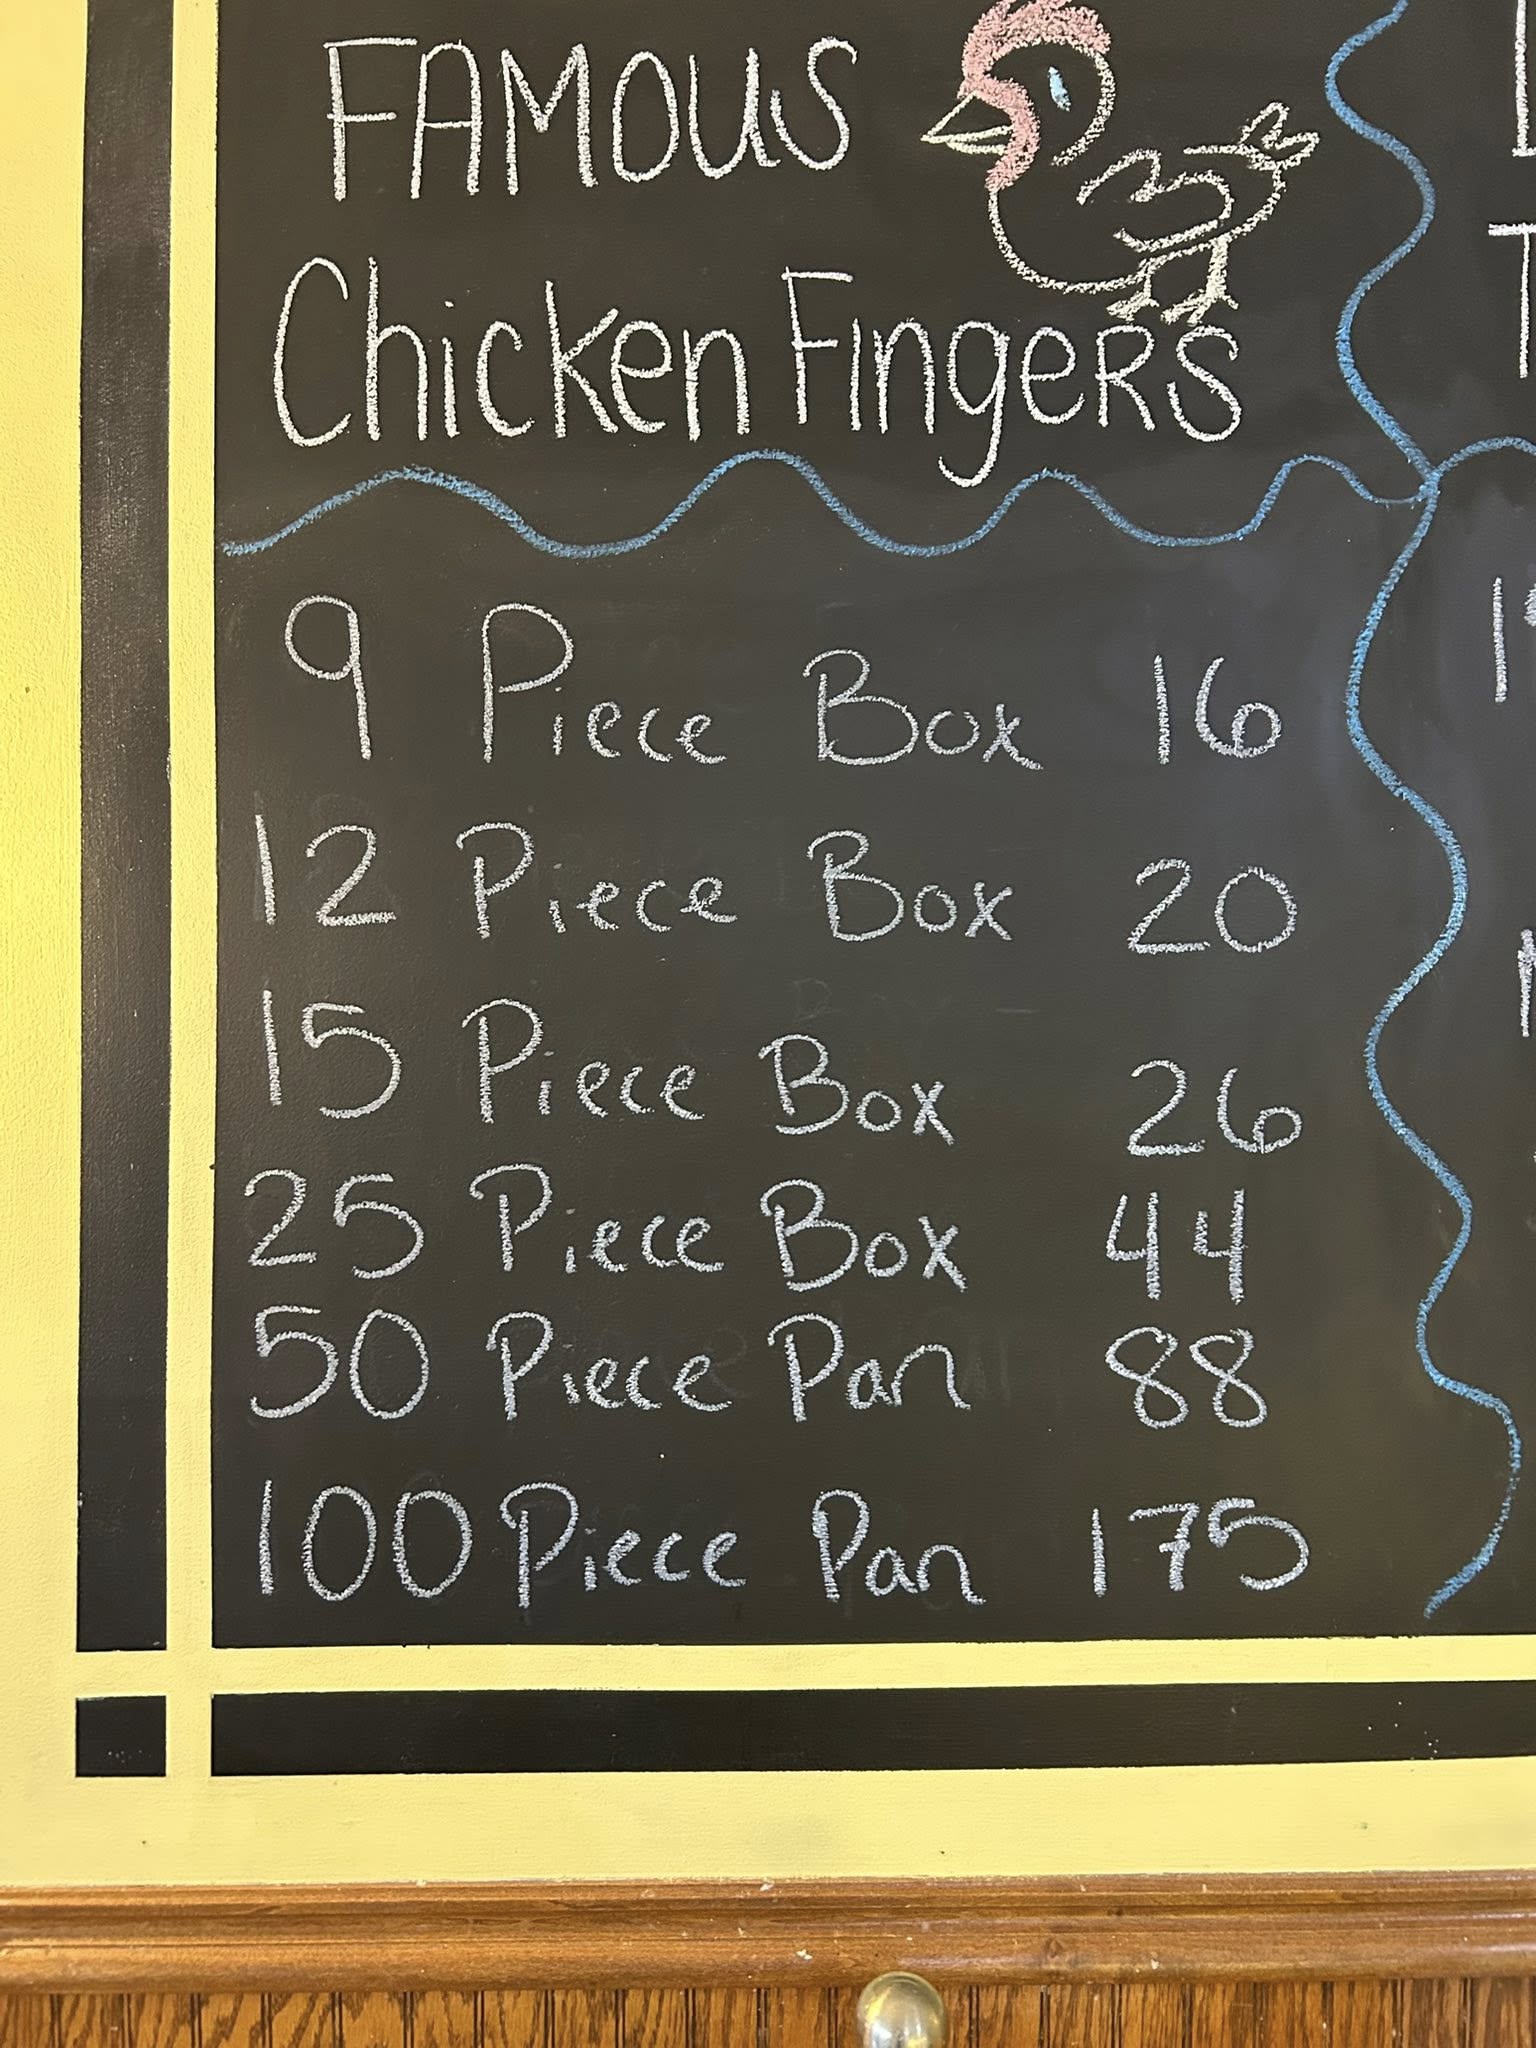 FAMOUS
Chicken FingeRS
9 Piece Box 16
12 Piece Box 20
15 Piece Box 26
25 Piece Box 44
50 Piece Pan 88
100 Piece Pan 175